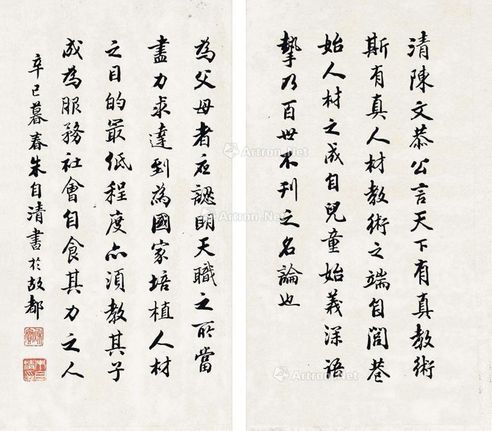 清陳文恭公言天下有真教術
斯有真人材教術之端自閭巷
始人材之成自兒童始義深語
摯乃百世不刊之名論也
為父母者應認明天職之所當
盡力求達到為國家培植人材
之目的最低程度亦須教其子
成為服務社會自食其力之人
辛巳暮春朱自清書於故都
Artron.Net
Artron.Net
Artron.Net